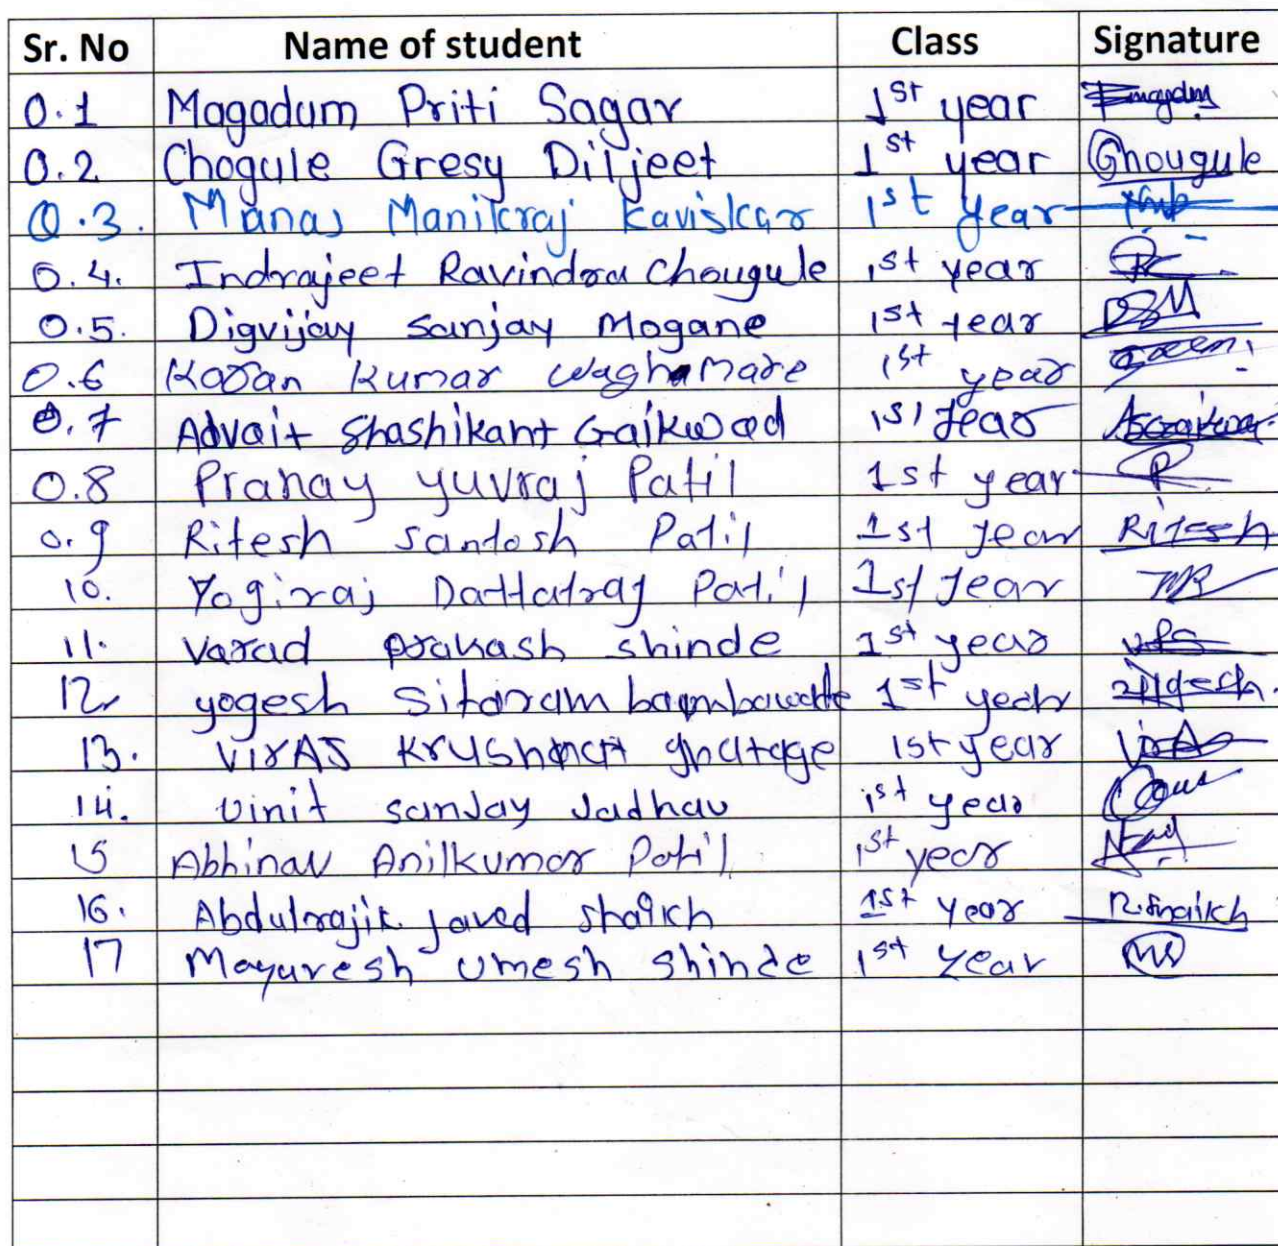 Sr. No Name of student Class Signature
0.1 Magadum Priti Sagar 1st year
0.2 Chogule Gresy Diljeet 1st year Chougule
0.3. Manas Manikraj Kaviskar 1st year
0.4. Indrajeet Ravindra Chougule 1st year
0.5. Digvijay Sanjay Mogane 1st year DSM
0.6 Karan Kumar waghamare 1st year
0.7 Advait Shashikant Gaikwad 1st year
0.8 Pranay yuvraj Patil 1st year P
0.9 Ritesh Santosh Patil 1st year Ritesh
10. Yogiraj Dattatray Patil 1st year
11. Varad prakash shinde 1st year VPS
12 yogesh Sitaram 1st year
13. VirAJ Krushnat ghatage 1st year
14. Vinit sanJay Jadhav 1st year
15 Abhinav Anilkumar Patil 1st year
16. Abdulrajik javed shaikh 1st year R.Shaikh
17 Mayuresh Umesh Shinde 1st year